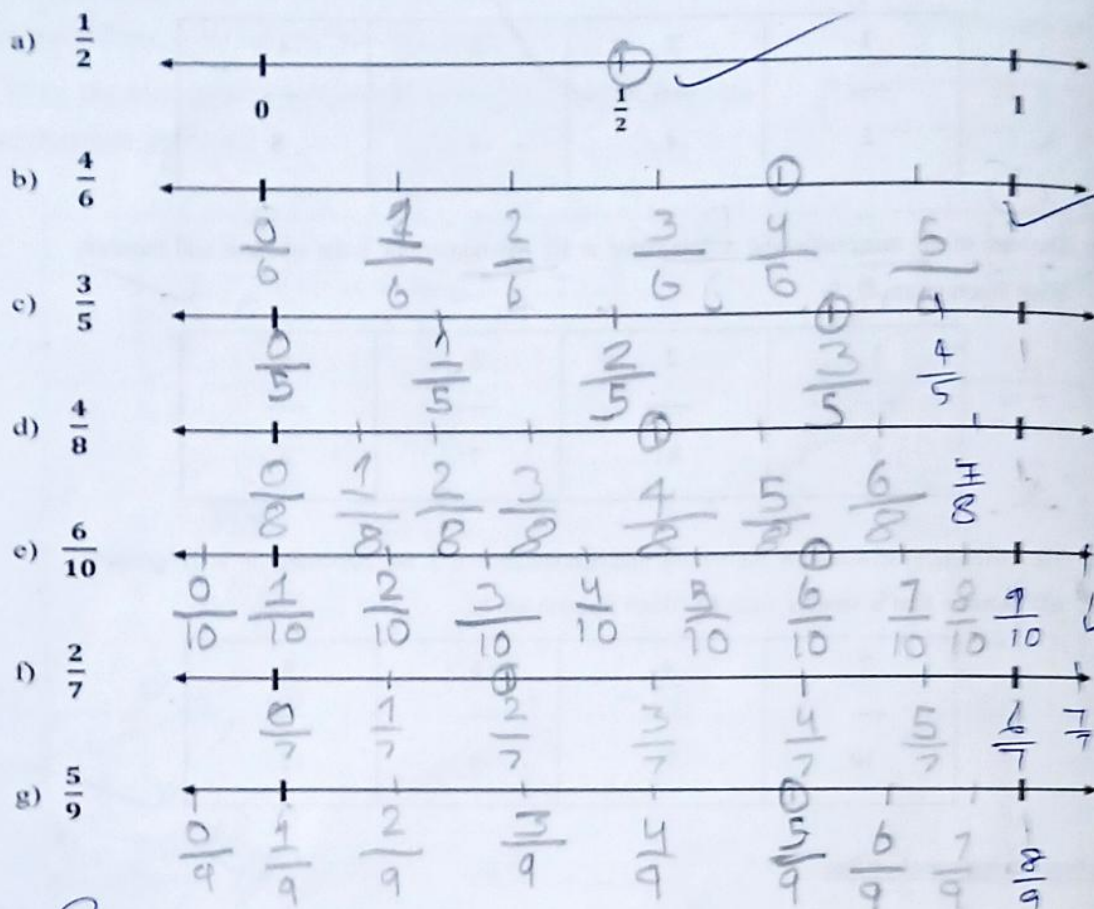 a) 1/2
0 1/2 1
b) 4/6
0/6 1/6 2/6 3/6 4/6 5/6 1
c) 3/5
0/5 1/5 2/5 3/5 4/5 1
d) 4/8
0/8 1/8 2/8 3/8 4/8 5/8 6/8 7/8 1
e) 6/10
0/10 1/10 2/10 3/10 4/10 5/10 6/10 7/10 8/10 9/10
f) 2/7
0/7 1/7 2/7 3/7 4/7 5/7 6/7 7/7
g) 5/9
0/9 1/9 2/9 3/9 4/9 5/9 6/9 7/9 8/9